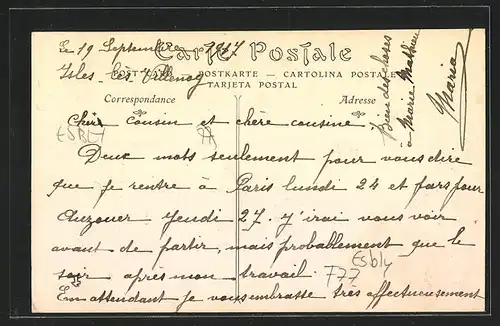 Le 19 Septembre 1917
Carte Postale
Isles-lès-Villenoy
POSTKARTE — CARTOLINA POSTALE
TARJETA POSTAL
Correspondance
Adresse
Cher cousin et chère cousine
Deux mots seulement pour vous dire
que je rentre à Paris lundi 24 et pars pour
Auzouer Jeudi 27. J'irai vous voir
avant de partir, mais probablement que le
soir après mon travail.
En attendant je vous embrasse très affectueusement
Maria
Bien des choses
à Marie Mathieu
ESBLY
77
Esbly
F77